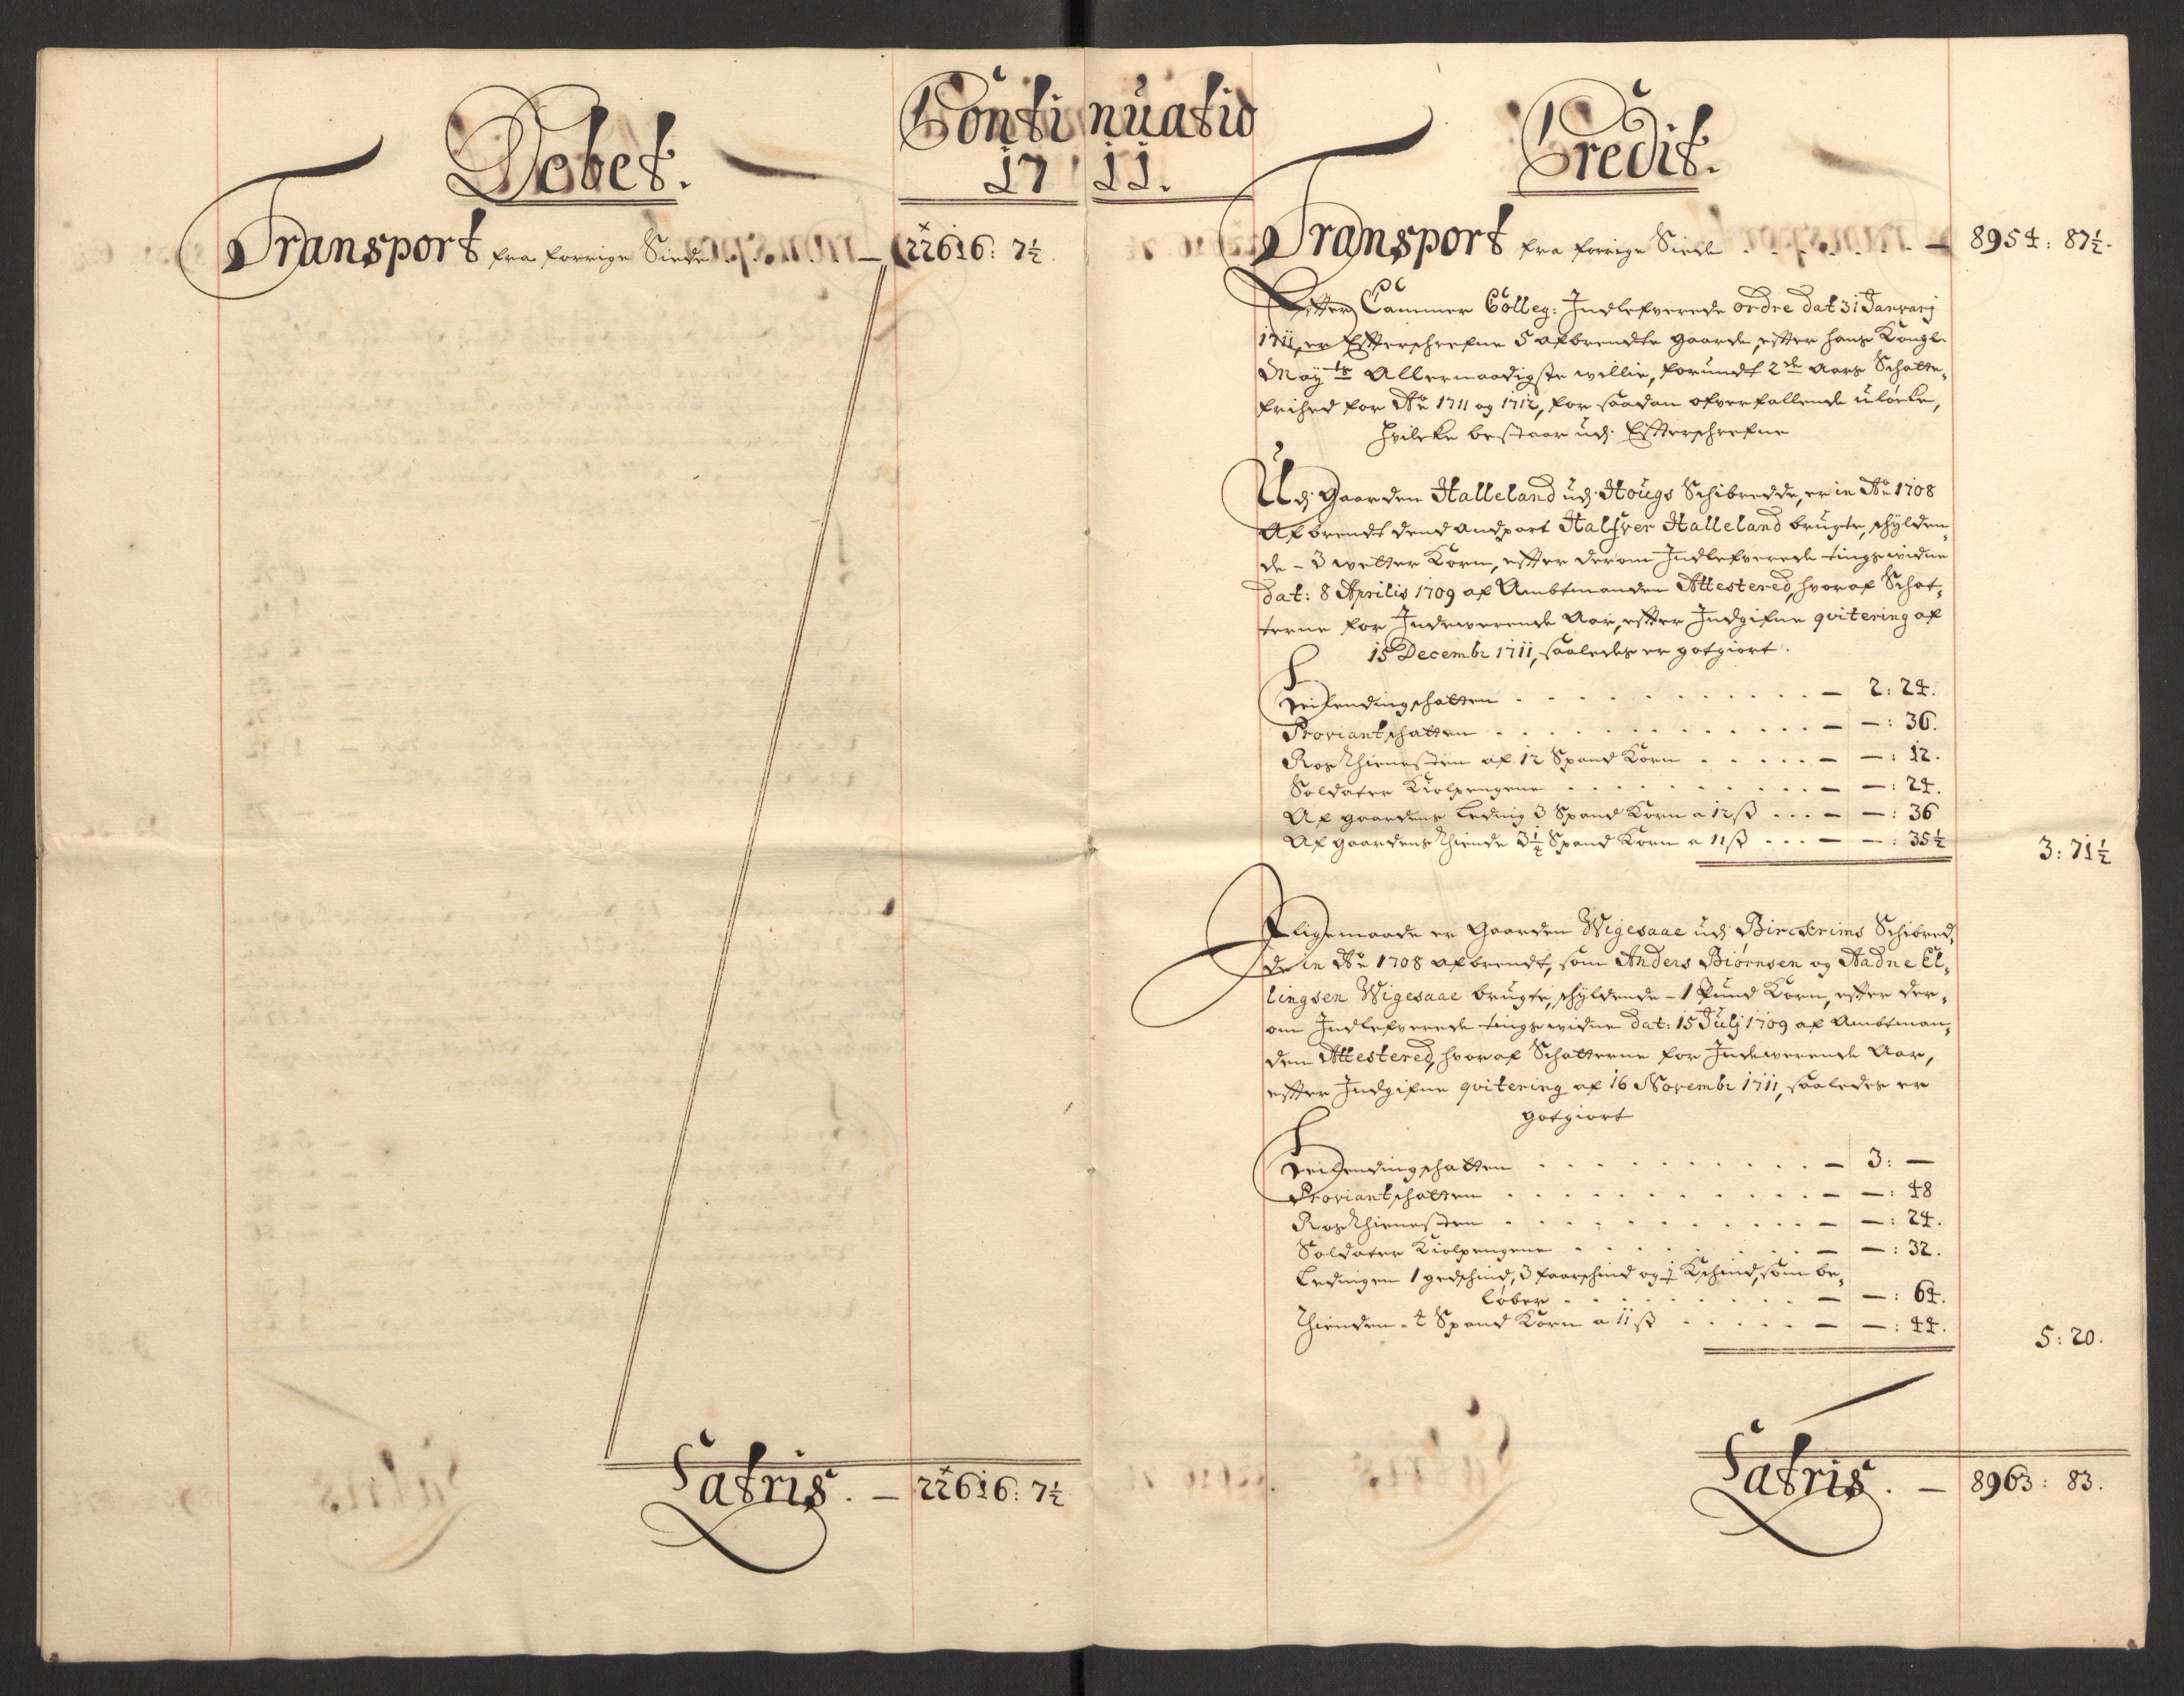 Continuatio
1711.
Debet.
Transport fra forrige Siide — 22616: 7½
Latris. — 22616: 7½
Credit.
Transport fra forrige Siide — 8954: 87½.
Efter Cammer Colleg: Indlefverede ordre dat 31 Janvarj
1711, er Effterschrefne 5 afbrendte gaarde, effter hans Kongl.
May.ts Allernaadigste willie, forundt 2de Aars Schatte-
frihed for Ao 1711 og 1712, for saadan ofverfallende uløcke,
Hvilcke bestaar udj Effterschrefne
Udj Gaarden Halleland udj Hougs Schibredde, er in Ao 1708
Afbrendt dend andpart Halfver Halleland brugte, schylden-
de - 3 wetter Korn, effter derom Indlefverede tingswidne
dat: 8 Aprilis 1709 af Ambtmanden Attestered, hvoraf Schat-
terne for Indewerende Aar, effter Indgifne qvitering af
15 Decembr 1711, saaledes er gotgiort.
Leilendingschatten — 2: 24.
Proviantschatten — —: 36.
Rosthienesten af 12 Spand Korn — —: 12.
Soldater Kiolpengene — —: 24.
Af gaardens Leding 3 Spand Korn a 12 ß — —: 36
Af gaardens Thiende 3½ Spand Korn a 11 ß — —: 35½
3: 71½
Ligemaade er Gaarden Wigesaae udj Birckrims Schibred-
de in Ao 1708 afbrendt, som Anders Biørnsen og Aadne El-
lingsen Wigesaae brugte, schyldende - 1 Pund Korn, effter der-
om Indlefverede tingswidne dat: 15 Julj 1709 af Ambtman-
den Attestered, hvoraf Schatterne for Indewerende Aar,
effter Indgifne qvitering af 16 Novembr 1711, saaledes er
gotgiort
Leilendingschatten — 3: —
Proviantschatten — —: 48
Rosthienesten — —: 24.
Soldater Kiolpengene — —: 32.
Ledingen 1 gedschind, 3 faarschind og Kschind, som be-
løber — —: 64.
Thienden - 4 Spand Korn a 11 ß — —: 44.
5: 20.
Latris. — 8963: 83.